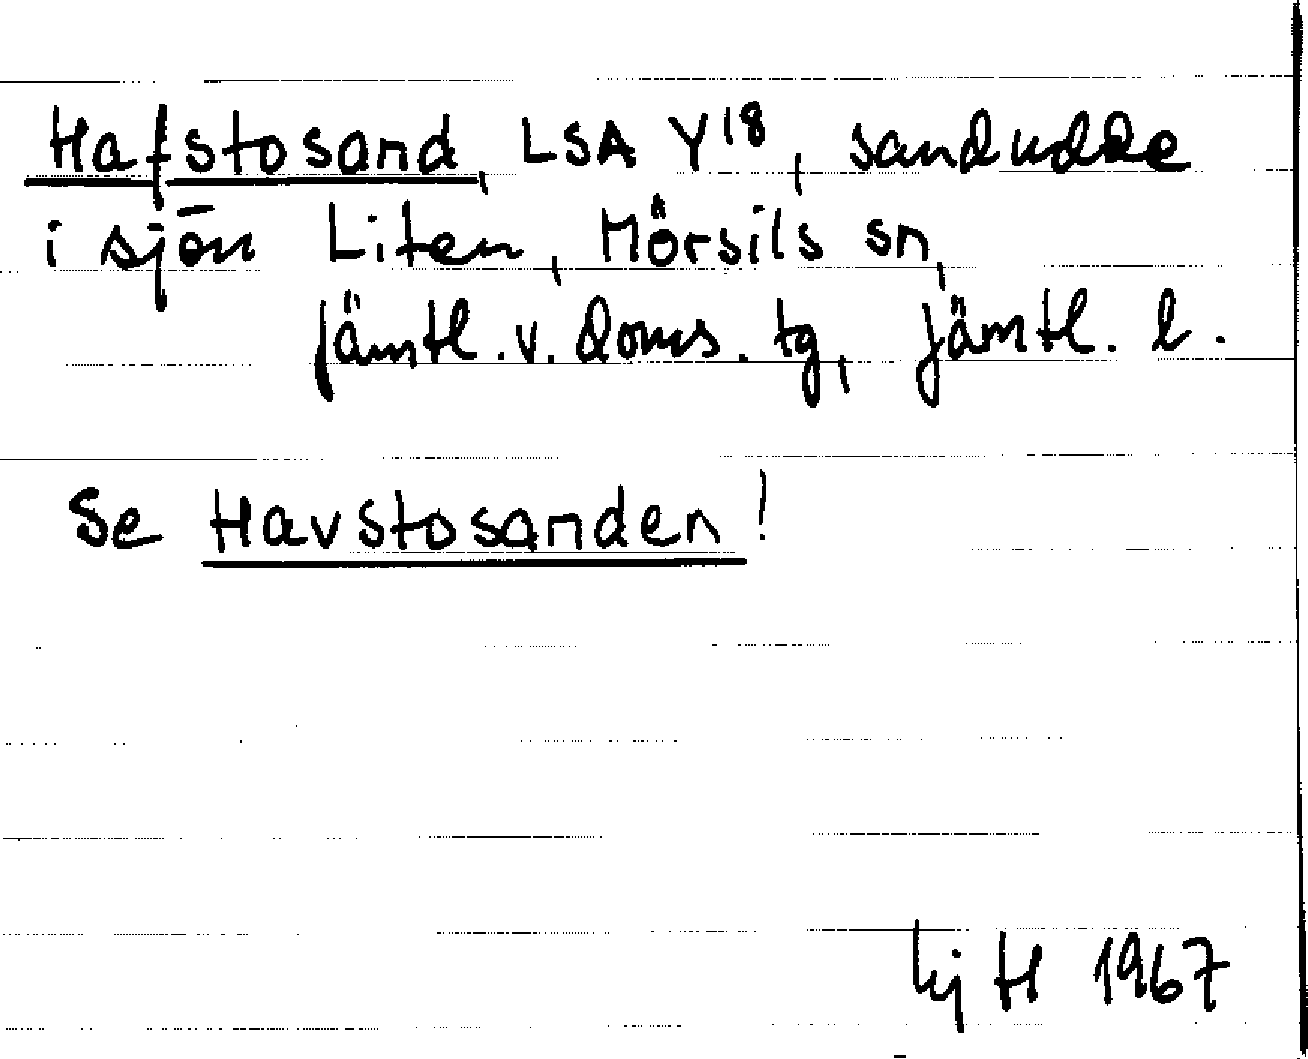 Hafstosand, LSA Y18, sandudde
i sjön Liten, Mörsils sn,
Jämtl. v. doms. tg, Jämtl. l.
Se Havstosanden!
H 1967